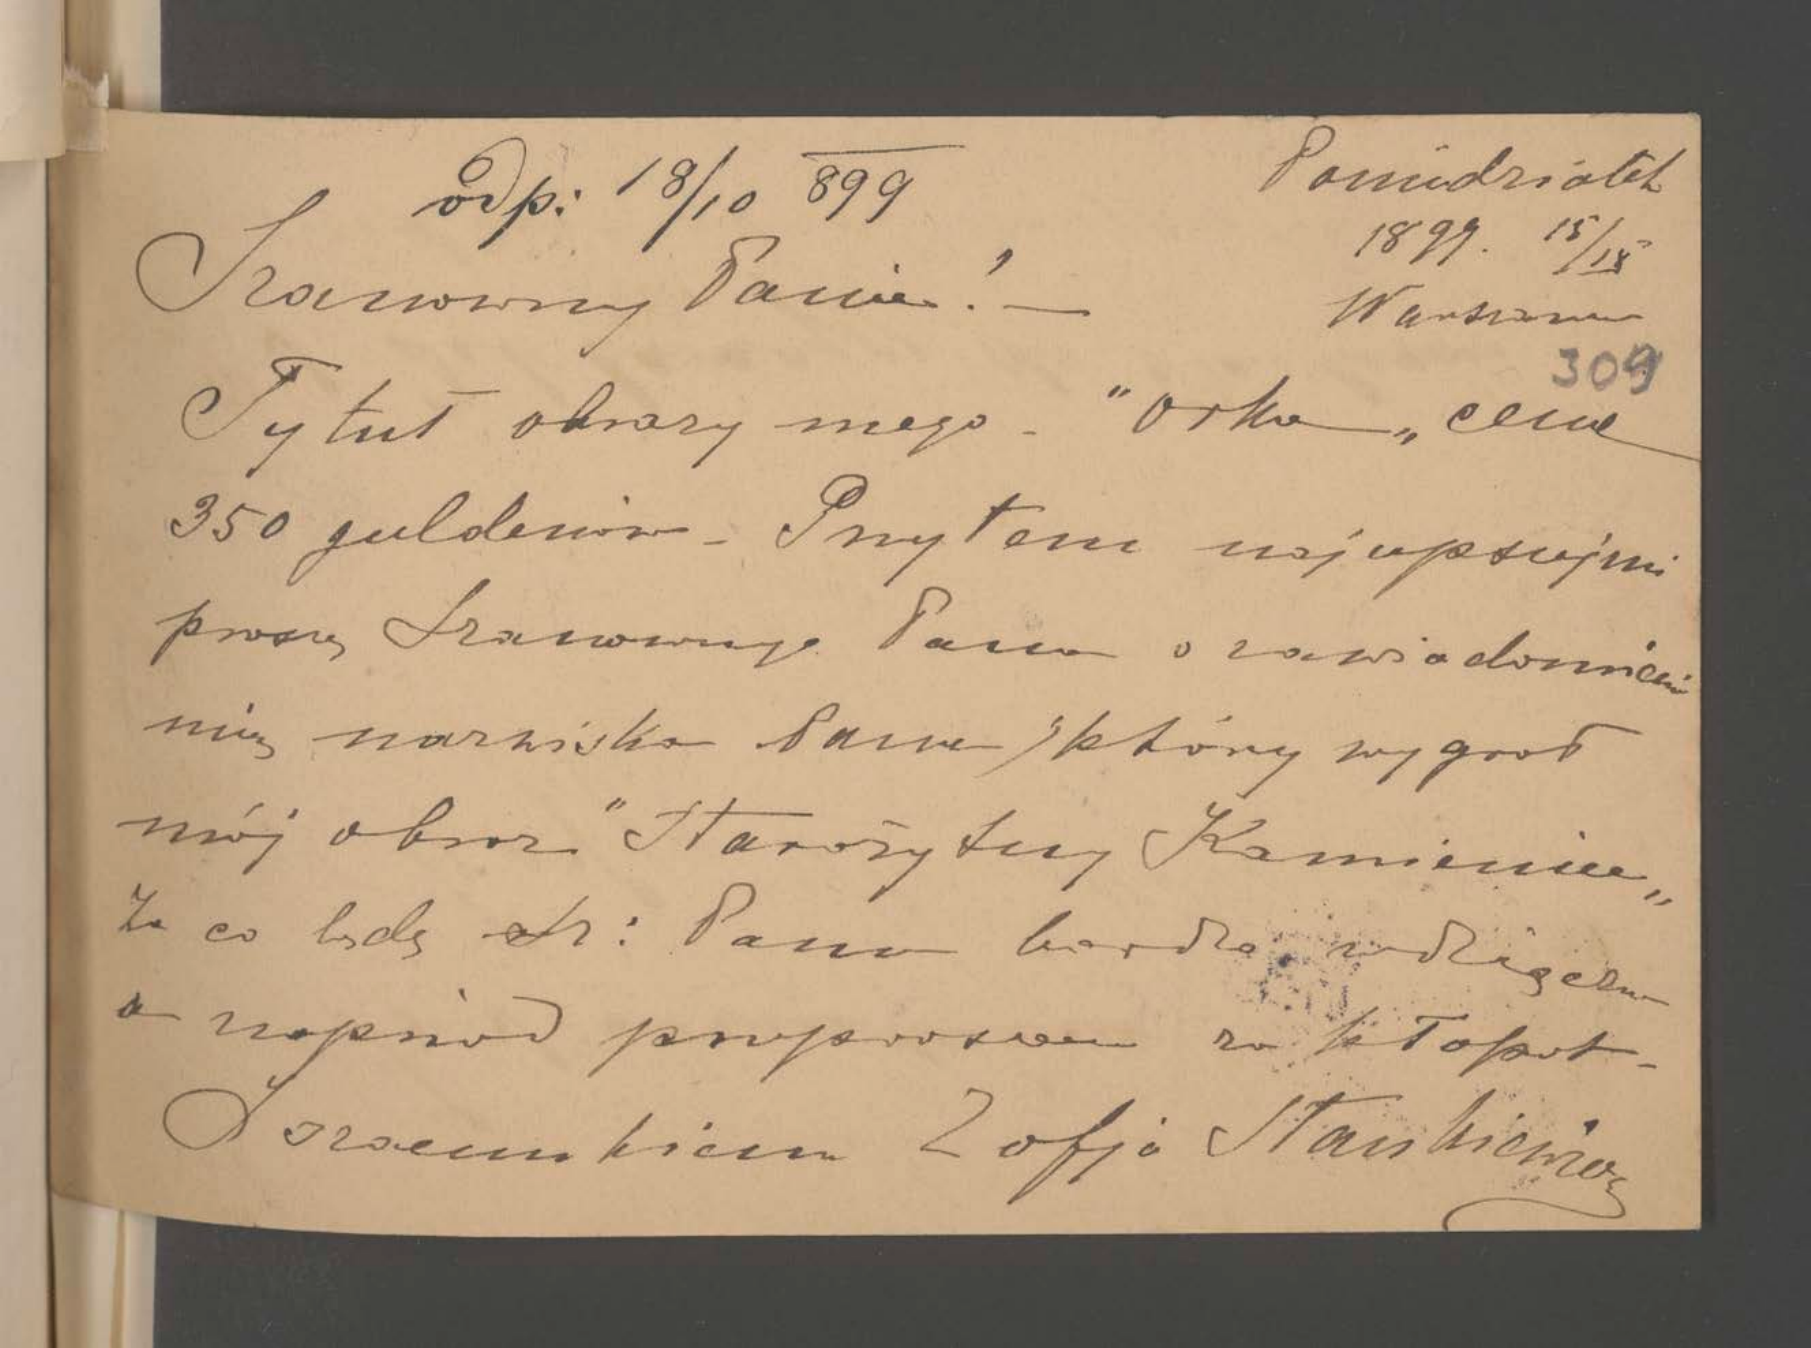 odp: 18/10 899
Poniedziałek
1899. 15/IX
Warszawa
309
Szanowny Panie! —
Tytuł obrazu mego - "Orka„ cena
350 guldenów - Przytem najuprzejmi
proszę Szanownego Pana o zawiadomieni
mię nazwiska Pana, który wygrał
mój obraz "Starożytny Kamienice„
Za co będę Sz: Panu bardzo wdzięczna
a naprzód przepraszam za kłopot -
Z szacunkiem Zofja Stankiewicz